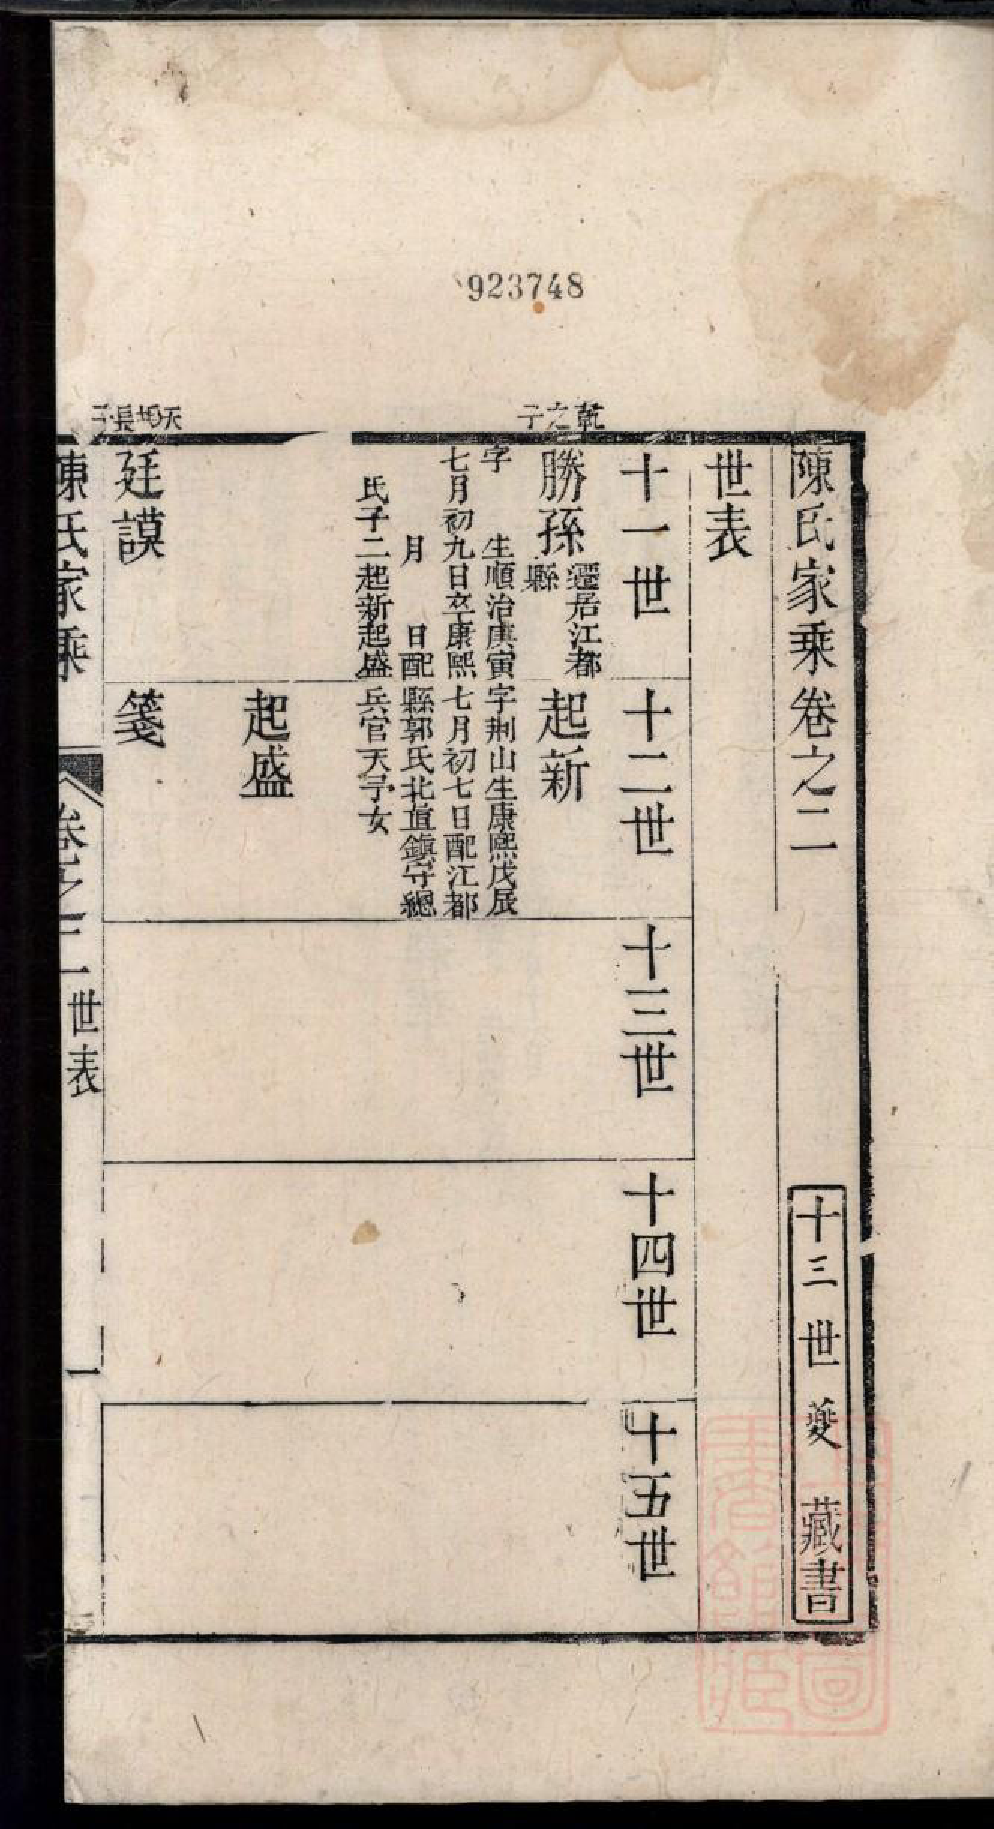 923748
陳氏家乘卷之二
十三世燮藏書
世表
十一世
十二世
十三世
十四世
十五世
乾之子
勝孫
遷居江都
縣
字 生順治庚寅
七月初九日卒康熙
月 日配
氏子二起新起盛
起新
字荆山生康熙戊辰
七月初七日配江都
縣郭氏北直鎮守總
兵官天孚女
起盛
天垣長子
廷謨
箋
陳氏家乘
卷之二
世表
一